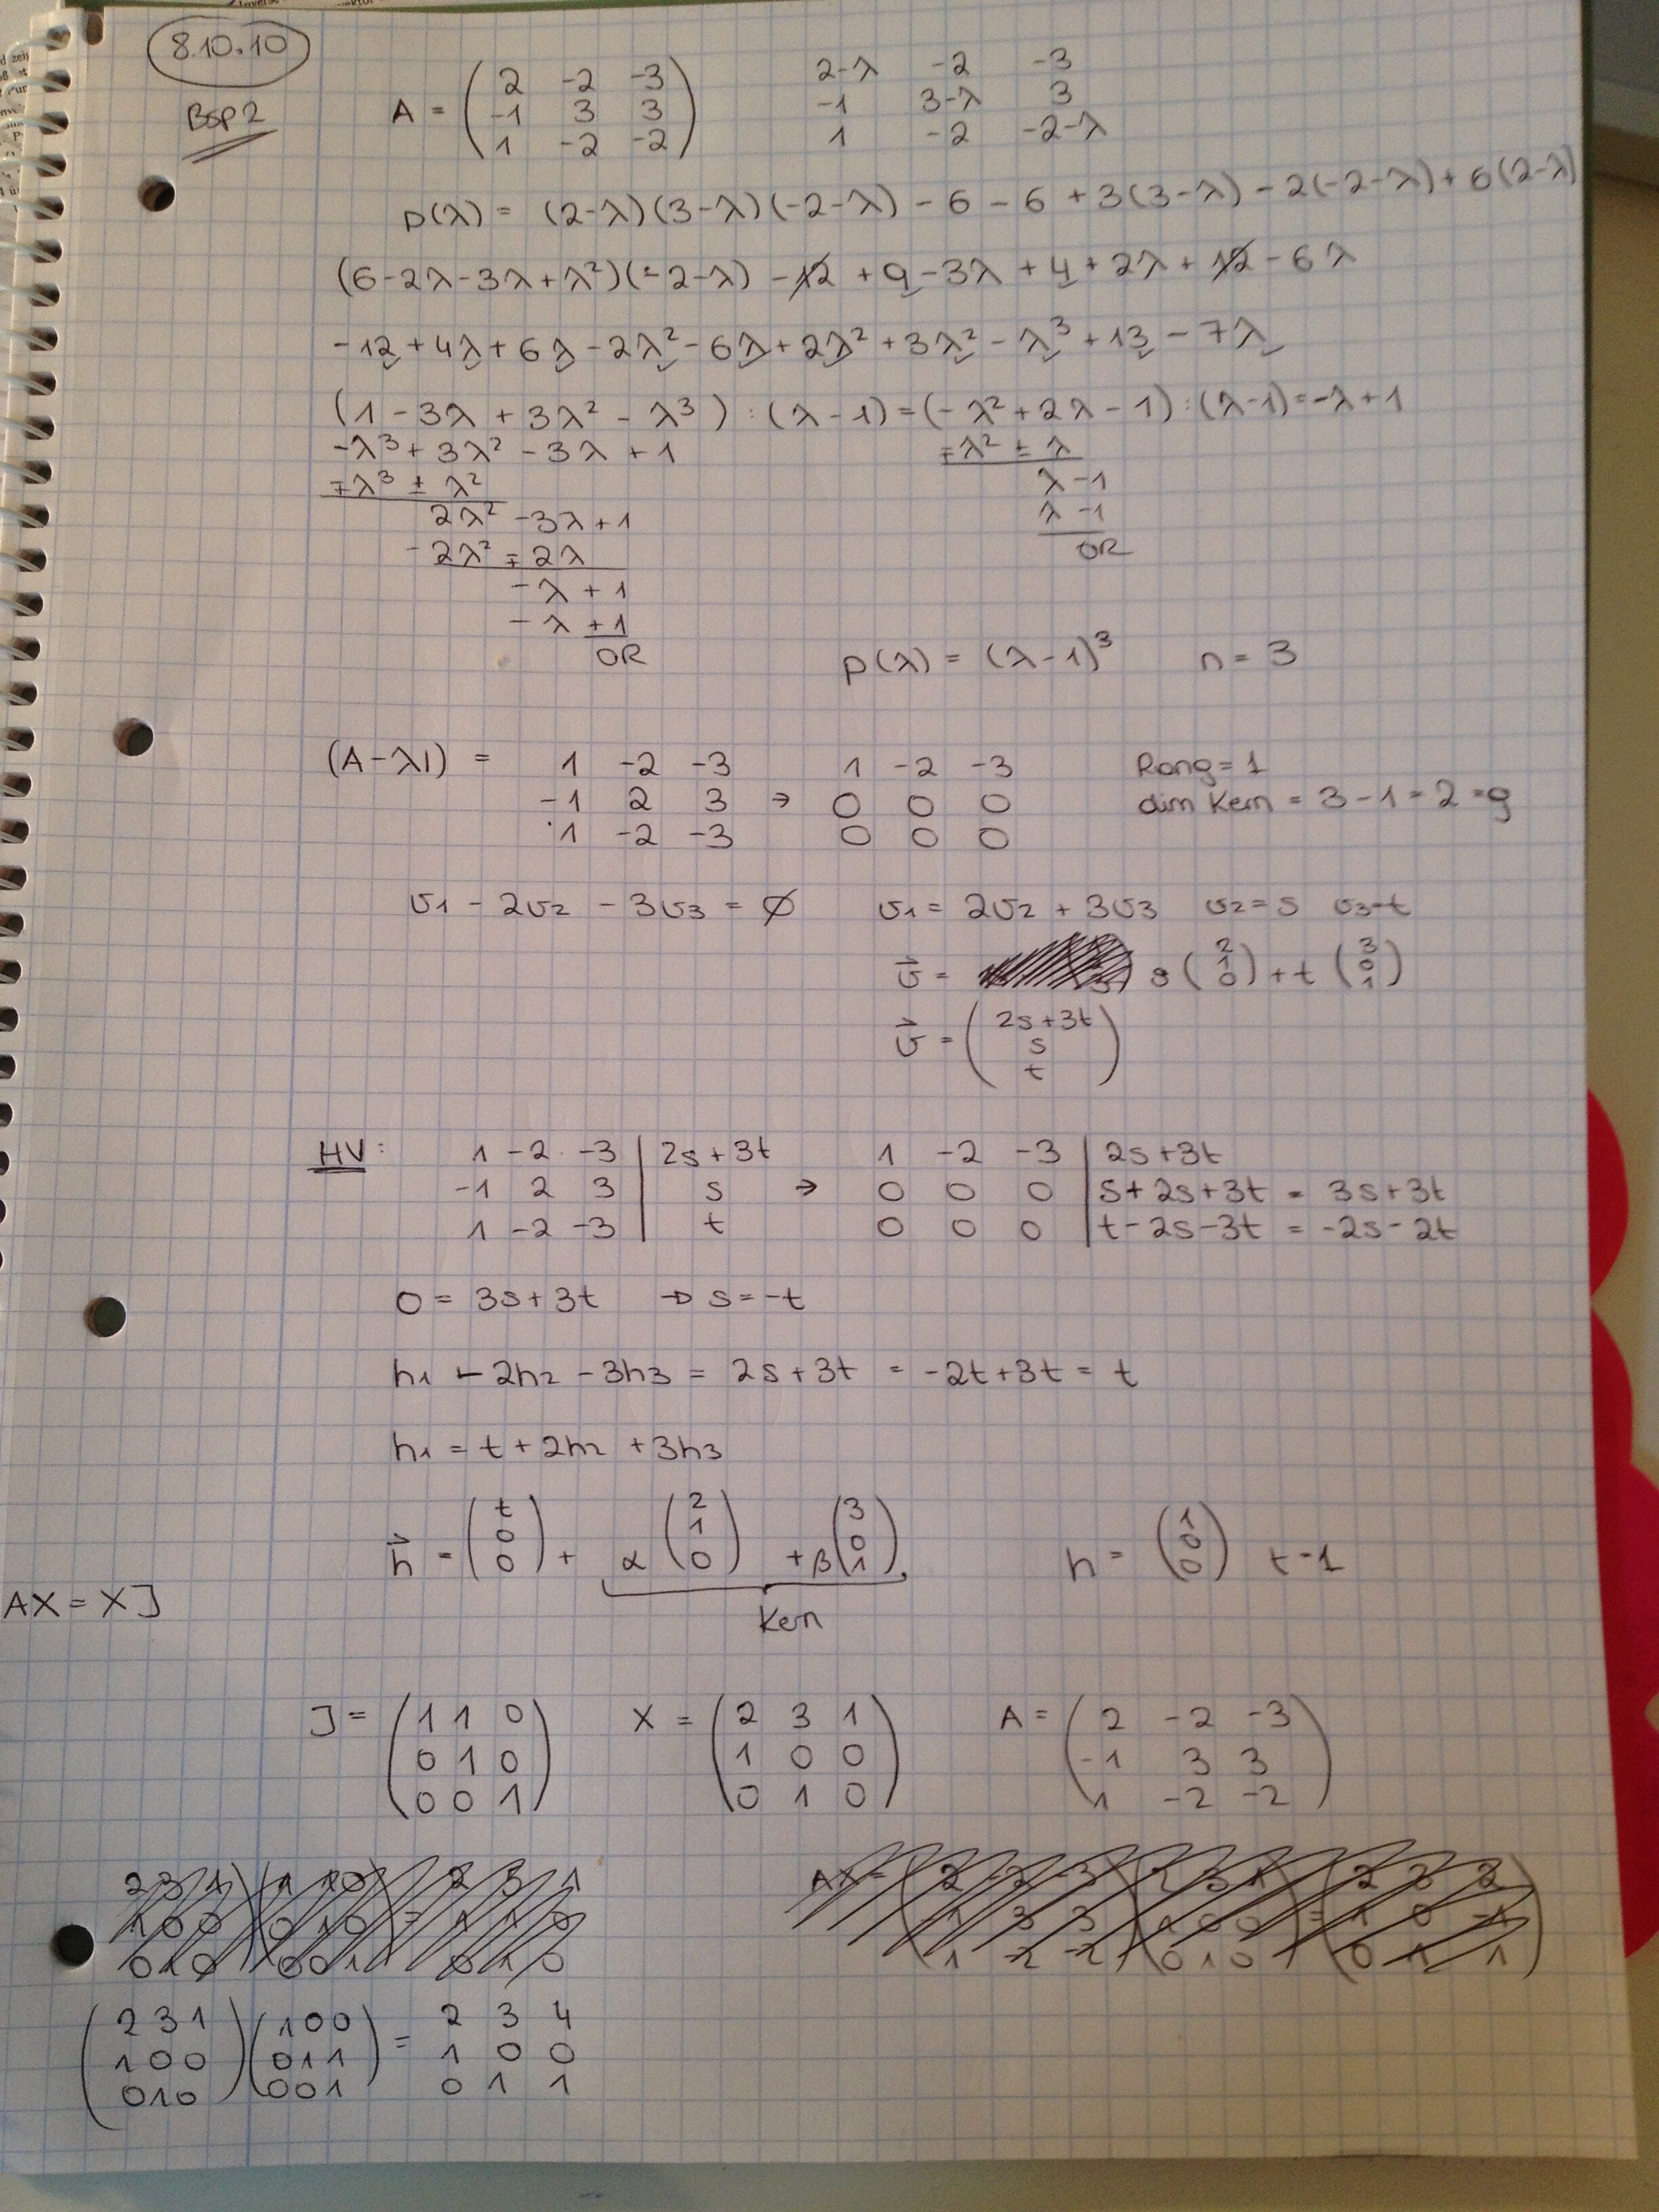 8.10.10
Bsp2
A = ( 2 -2 -3 ) 2-λ -2 -3
-1 3 3 -1 3-λ 3
1 -2 -2 1 -2 -2-λ
p(λ) = (2-λ)(3-λ)(-2-λ) - 6 - 6 + 3(3-λ) - 2(-2-λ) + 6(2-λ)
(6-2λ-3λ+λ²)(-2-λ) - 12 + 9 - 3λ + 4 + 2λ + 12 - 6λ
-12 + 4λ + 6λ - 2λ² - 6λ + 2λ² + 3λ² - λ³ + 13 - 7λ
(1 - 3λ + 3λ² - λ³) : (λ-1) = (-λ² + 2λ - 1) : (λ-1) = -λ+1
-λ³ + 3λ² - 3λ + 1 ∓λ² ± λ
∓λ³ ± λ² λ - 1
2λ² - 3λ + 1 λ - 1
-2λ² ∓ 2λ OR
-λ + 1
-λ + 1
OR
p(λ) = (λ-1)³ n = 3
(A-λI) = 1 -2 -3 1 -2 -3 Rang = 1
-1 2 3 → 0 0 0 dim Kern = 3 - 1 = 2 = g
1 -2 -3 0 0 0
v1 - 2v2 - 3v3 = ∅ v1 = 2v2 + 3v3 v2 = s v3 = t
v⃗ = s ( 2 1 0 ) + t ( 3 0 1 )
v⃗ = ( 2s+3t s t )
HV: 1 -2 -3 | 2s+3t 1 -2 -3 | 2s+3t
-1 2 3 | s → 0 0 0 | s+2s+3t = 3s+3t
1 -2 -3 | t 0 0 0 | t-2s-3t = -2s-2t
0 = 3s+3t → s = -t
h1 - 2h2 - 3h3 = 2s+3t = -2t+3t = t
h1 = t + 2h2 + 3h3
h⃗ = ( t 0 0 ) + α ( 2 1 0 ) + β ( 3 0 1 ) h = ( 1 0 0 ) t = 1
Kern
AX = XJ
J = ( 1 1 0 ) X = ( 2 3 1 ) A = ( 2 -2 -3 )
0 1 0 1 0 0 -1 3 3
0 0 1 0 1 0 1 -2 -2
( 2 3 1 ) ( 1 0 0 ) = 2 3 4
1 0 0 0 1 1 1 0 0
0 1 0 0 0 1 0 1 1